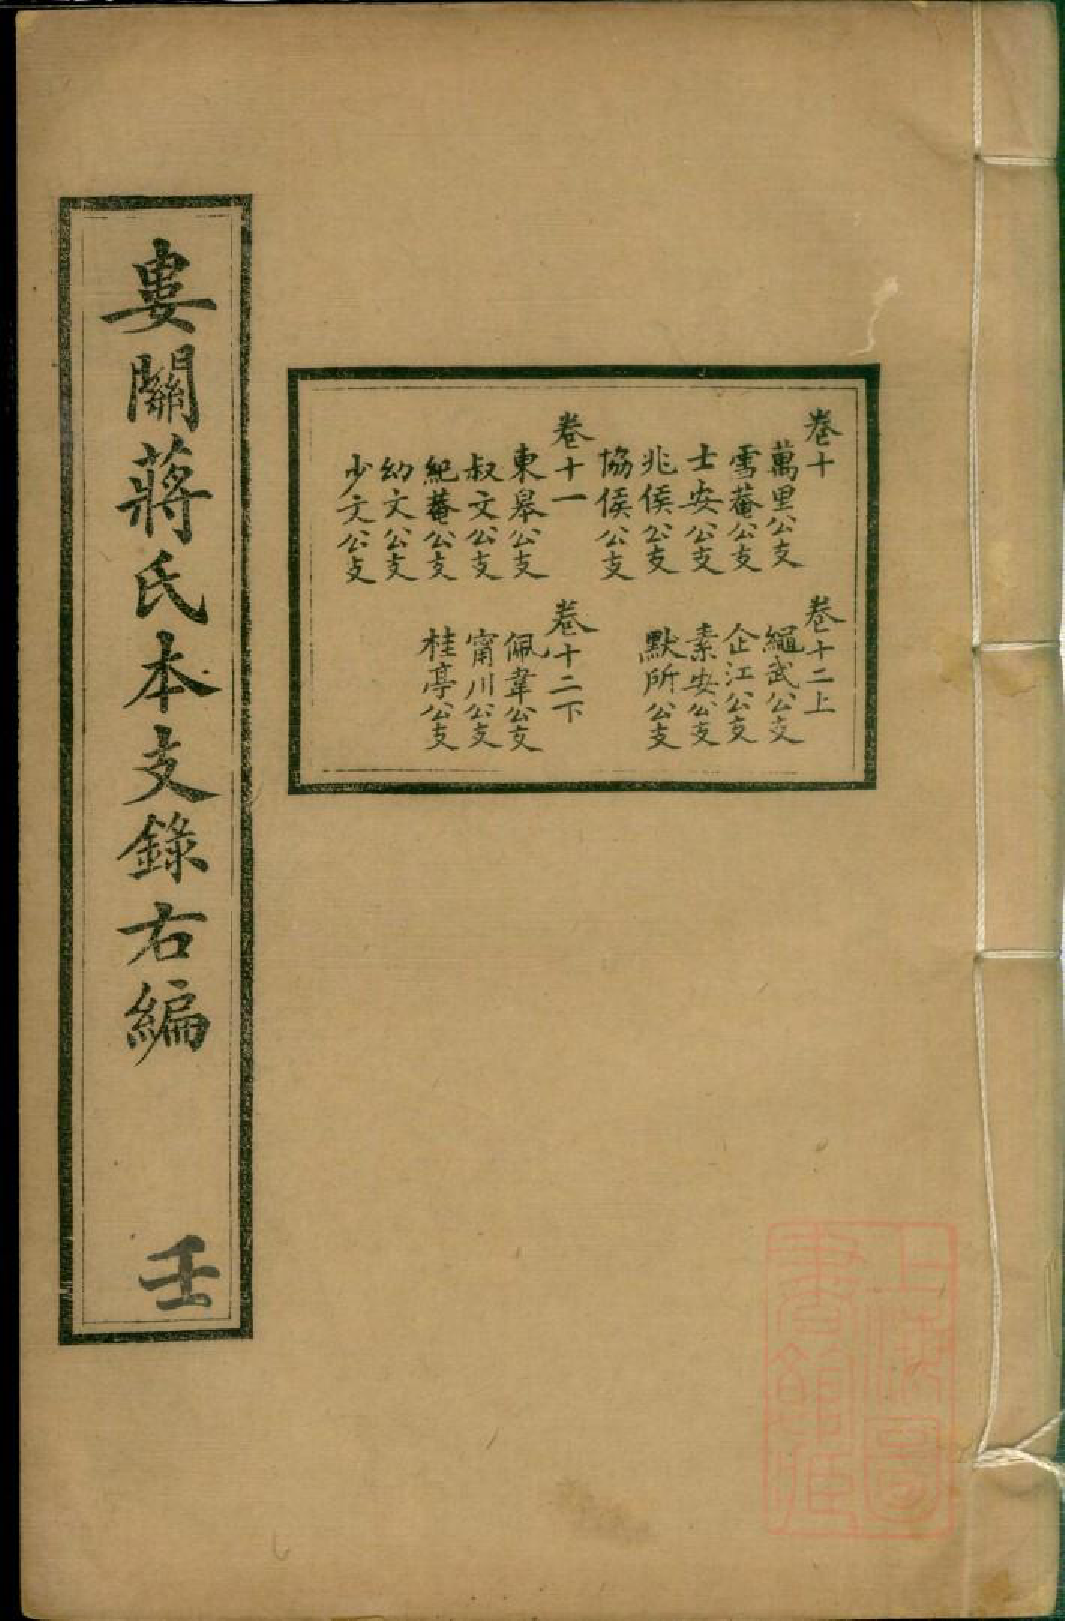 婁關蔣氏本支錄右編 壬
卷十
萬里公支
雪菴公支
士安公支
兆侯公支
協侯公支
卷十一
東皋公支
叔文公支
紀菴公支
幼文公支
少文公支
卷十二上
繩武公支
企江公支
素安公支
默所公支
卷十二下
佩韋公支
甯川公支
桂亭公支
上海圖
書館藏